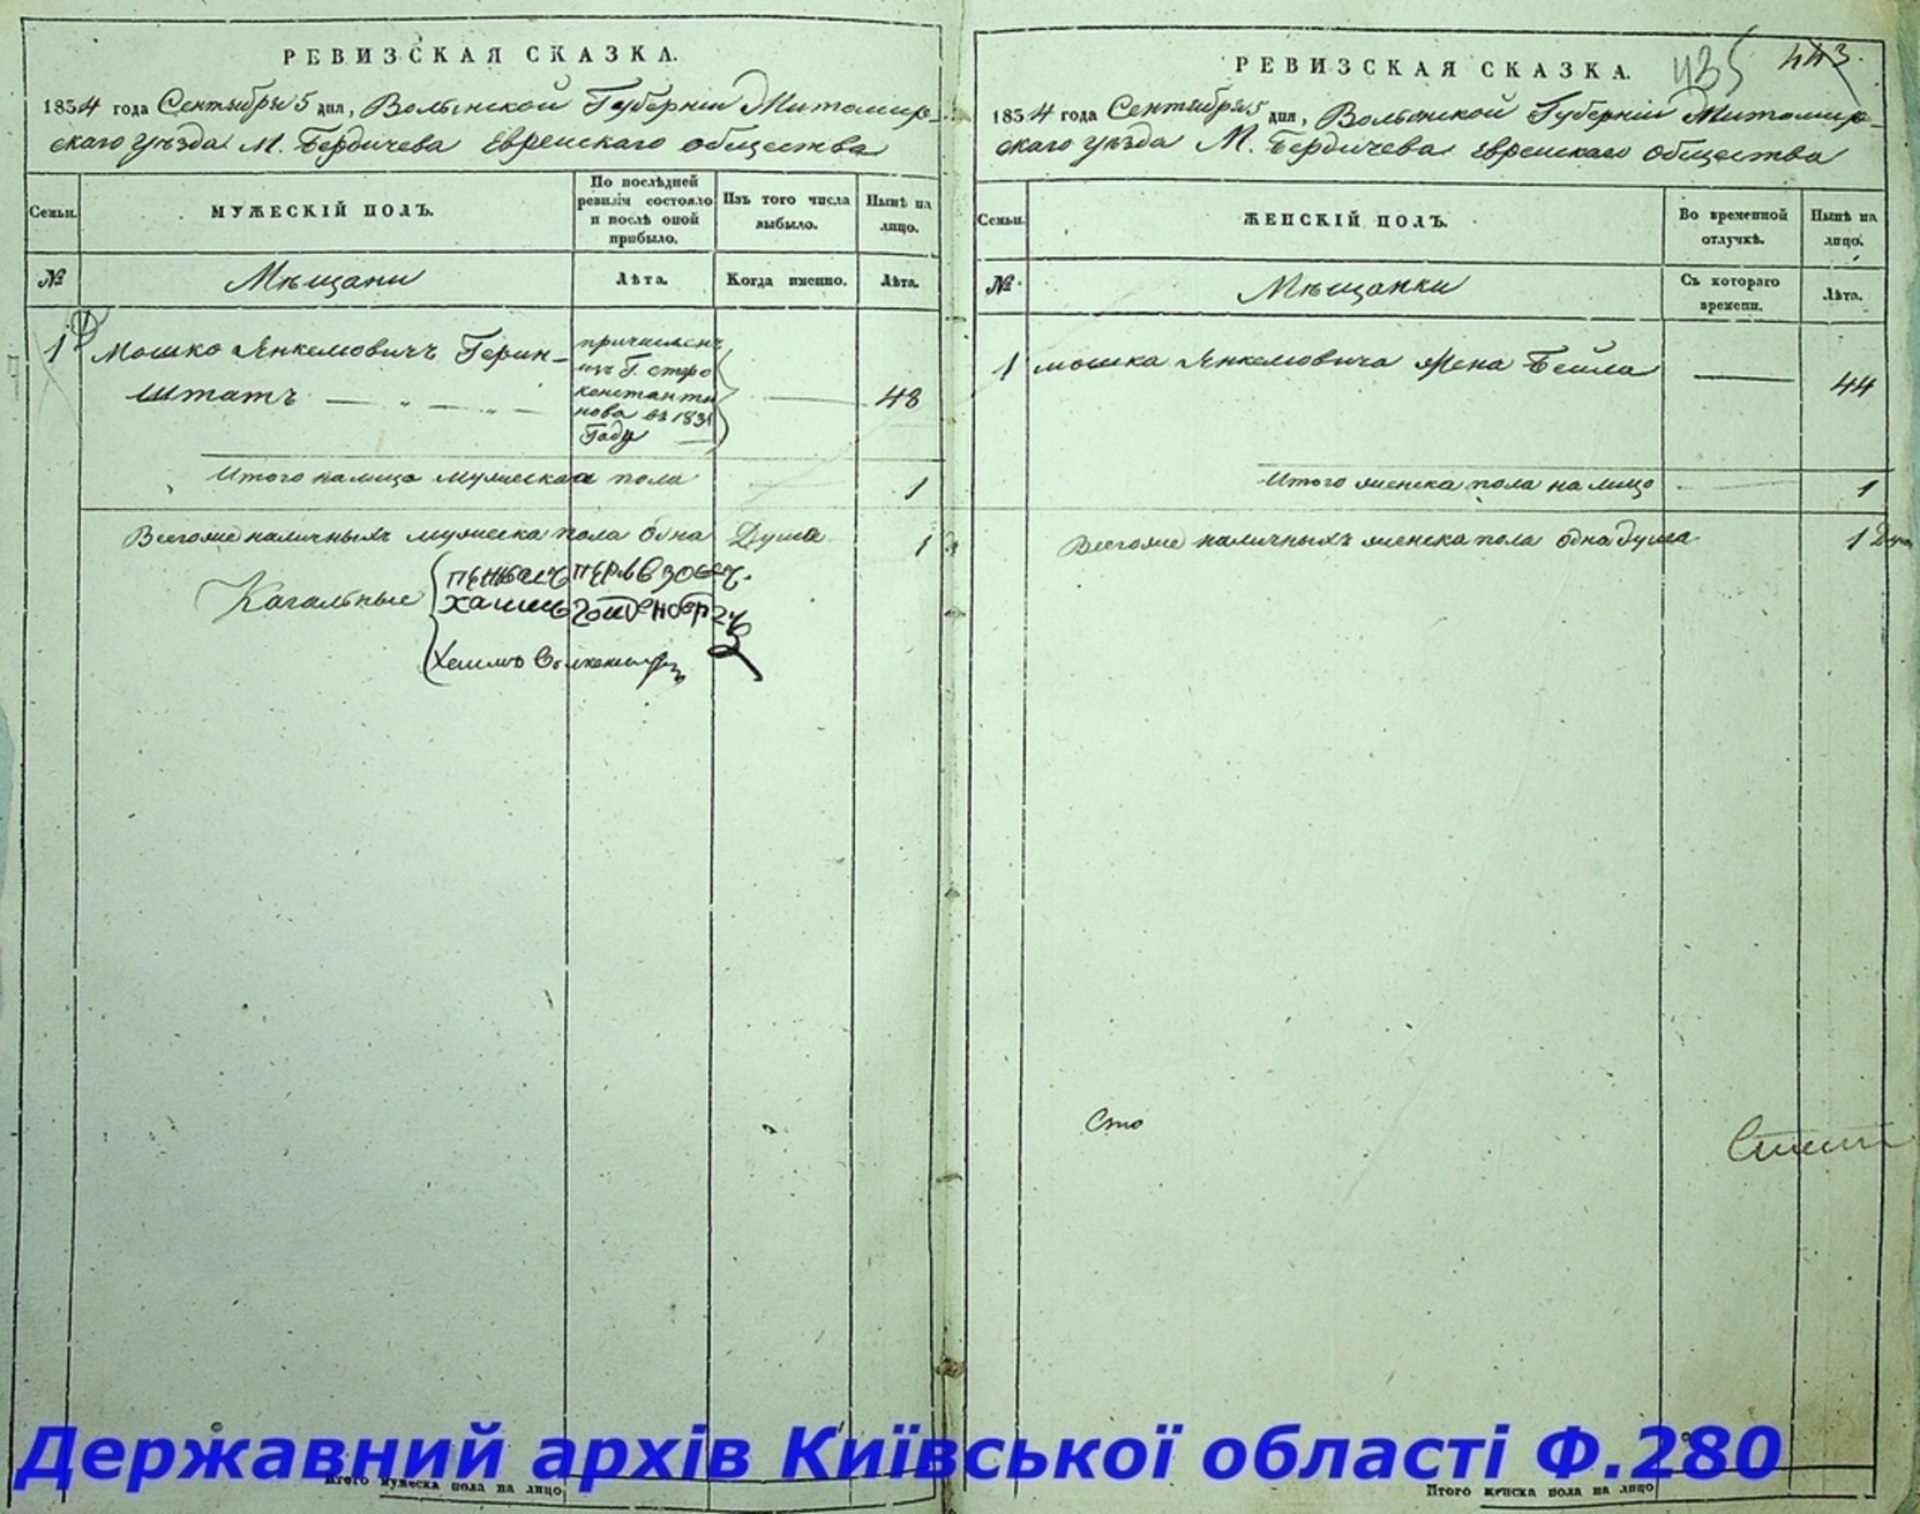 РЕВИЗСКАЯ СКАЗКА.
1854 года Сентября 5 дня, Волынской Губерніи Житомир-
скаго уѣзда М. Бердичева Еврейскаго общества
Семьи.
МУЖЕСКІЙ ПОЛЪ.
По послѣдней ревизіи состояло и послѣ оной прибыло.
Изъ того числа выбыло.
Нынѣ на лицо.
№
Мѣщани
Лѣта.
Когда именно.
Лѣта.
1 Мошко Янкелювичъ Герин-
штатъ
причислен
изъ Г. старо
константи
нова въ 183
Году
48
Итого налицо мужеска пола 1
Всегоже наличныхъ мужеска пола одна Душа 1
Кагальные
Хаимъ
Итого мужеска пола на лицо
435 443.
РЕВИЗСКАЯ СКАЗКА.
1854 года Сентября 5 дня, Волынской Губерніи Житомир-
скаго уѣзда М. Бердичева Еврейскаго общества
Семьи.
ЖЕНСКІЙ ПОЛЪ.
Во временной отлучкѣ.
Нынѣ на лицо.
№
Мѣщанки
Съ котораго времени.
Лѣта.
1 мошка Янкелювича жена Бейла 44
Итого женска пола на лицо 1
Всегоже наличныхъ женска пола одна душа 1
Сто
Итого женска пола на лицо
Державний архів Київської області Ф.280